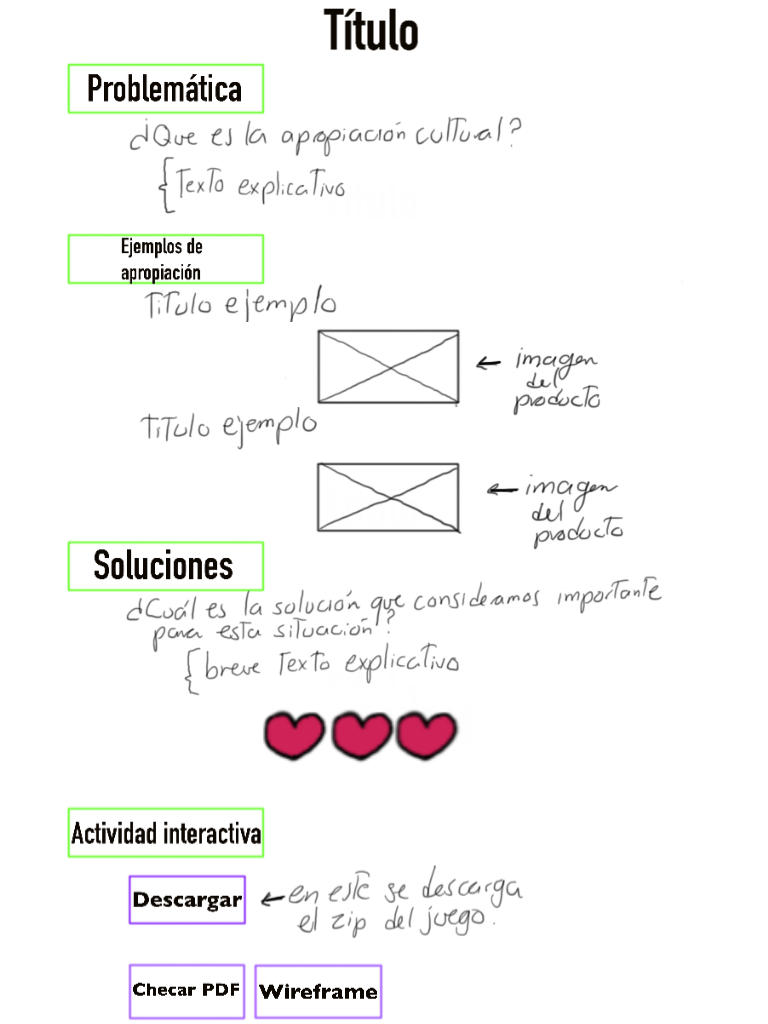 Título
Problemática
¿Que es la apropiación cultural?
{Texto explicativo
Ejemplos de
apropiación
Titulo ejemplo
← imagen
del
producto
Titulo ejemplo
← imagen
del
producto
Soluciones
¿Cuál es la solución que consideramos importante
para esta situación?
{breve Texto explicativo
Actividad interactiva
Descargar ← en este se descarga
el zip del juego.
Checar PDF Wireframe